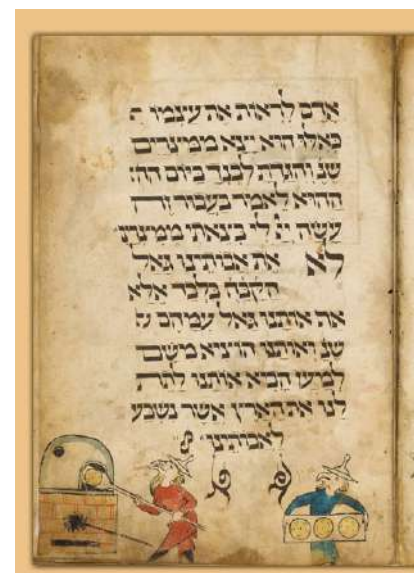 אדם לראות את עצמו ה
כאלו הוא יצא ממצרים
שנ והגדת לבנך ביום הה
ההוא לאמר בעבור זה
עשה יי לי בצאתי ממצרי
לא את אבותינו גאל
הקבה בלבד אלא
את אותנו גאל עמהם
שנ ואותנו הוציא משם
למען הביא אותנו לתת
לנו את הארץ אשר נשבע
לאבותינו